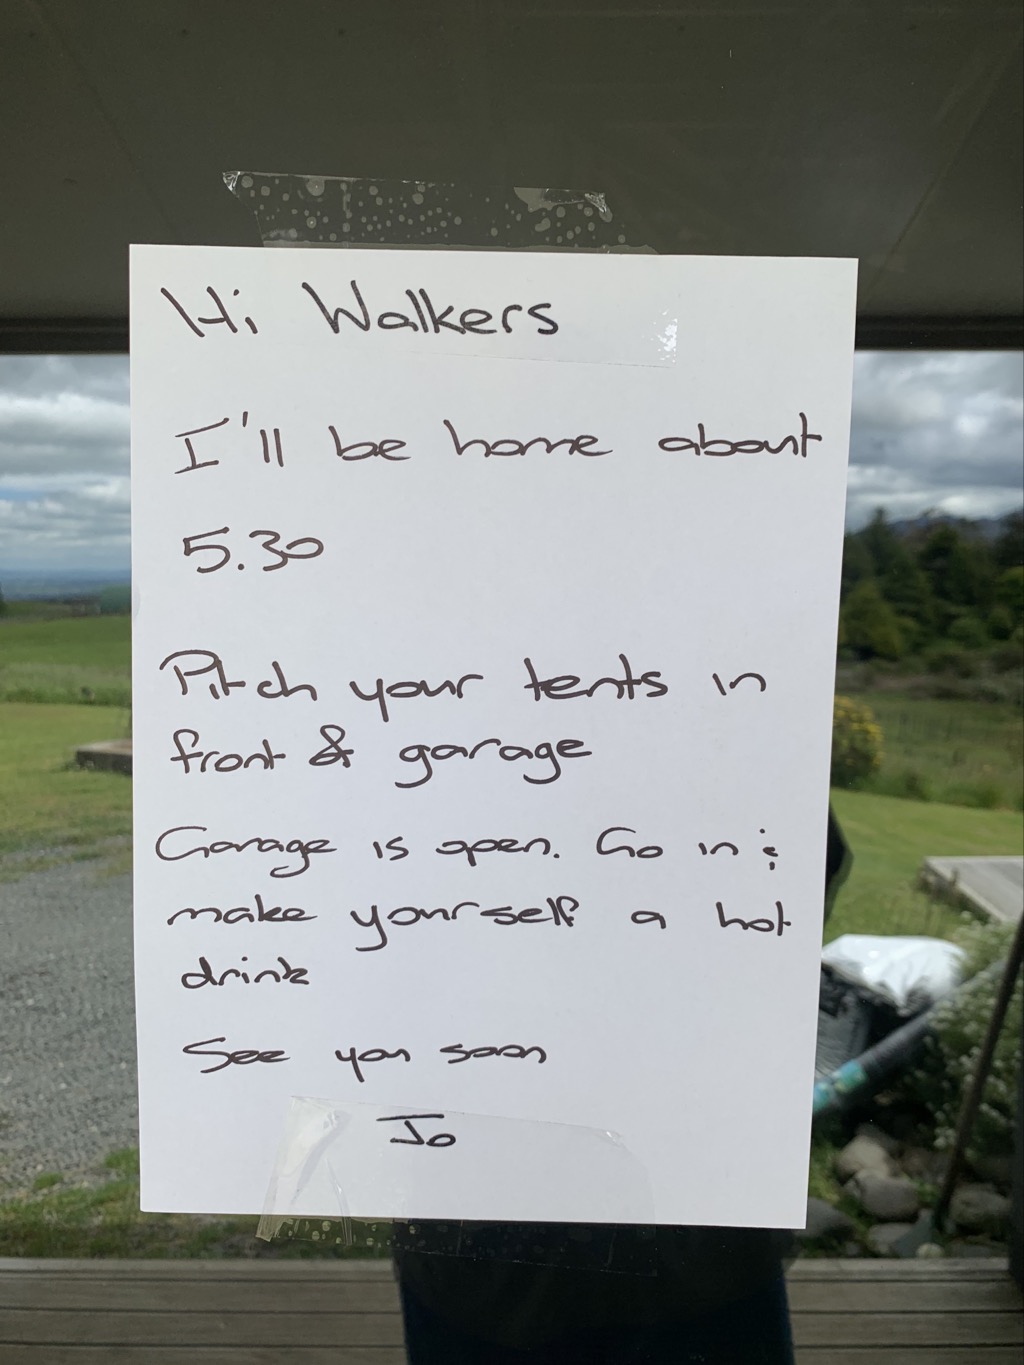 Hi Walkers
I'll be home about
5.30
Pitch your tents in
front & garage
Garage is open. Go in &
make yourself a hot
drink
See you soon
Jo